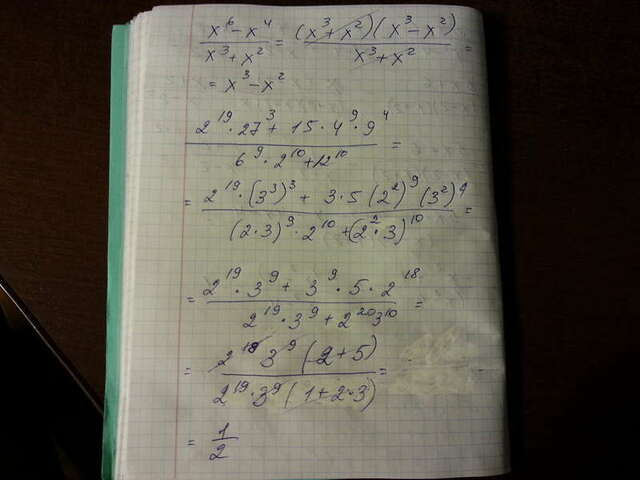 (x⁶ - x⁴)/(x³ + x²) = ((x³ + x²)(x³ - x²))/(x³ + x²) =
= x³ - x²
(2¹⁹ · 27³ + 15 · 4⁹ · 9⁴)/(6⁹ · 2¹⁰ + 12¹⁰) =
= (2¹⁹ · (3³)³ + 3 · 5 (2²)⁹ (3²)⁴)/((2 · 3)⁹ · 2¹⁰ + (2² · 3)¹⁰) =
= (2¹⁹ · 3⁹ + 3⁹ · 5 · 2¹⁸)/(2¹⁹ · 3⁹ + 2²⁰3¹⁰) =
= (2¹⁸ 3⁹ (2 + 5))/(2¹⁹ · 3⁹ (1 + 2 · 3)) =
= 1/2